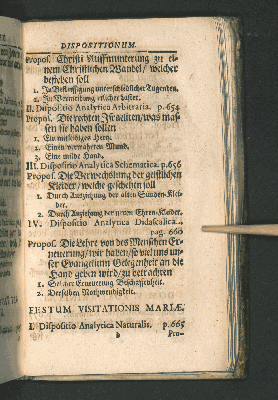 DISPOSITIONUM.
Propos. Christi Auffmunterung zu ei-
nem Christlichen Wandel / welcher
bestehen soll
1. In Befleissigung unterschiedlicher Tugenden.
2. In Vermeidung etlicher Laster.
II. Dispositio Analytica Arbitraria. p. 654
Propos. Die rechten Israeliten / was mas-
sen sie haben sollen
1. Ein mitleidiges Hertz.
2. Einen verwahreten Mund.
3. Eine milde Hand.
III. Dispositio Analytica Schematica. p. 656
Propos. Die Verwechslung der geistlichen
Kleider / welche geschehen soll
1. Durch Ausziehung der alten Sünden-Klei-
der.
2. Durch Anziehung der neuen Ehren-Kleider.
IV. Dispositio Analytica Didascalica.
pag. 660
Propos. Die Lehre von des Menschen Er-
neuerung / wir haben / so viel uns un-
ser Evangelium Gelegenheit an die
Hand geben wird / zu betrachten
1. Solcher Erneuerung Beschaffenheit.
2. Derselben Nothwendigkeit.
FESTUM VISITATIONIS MARIÆ.
I. Dispositio Analytica Naturalis. p. 665
b Pro-